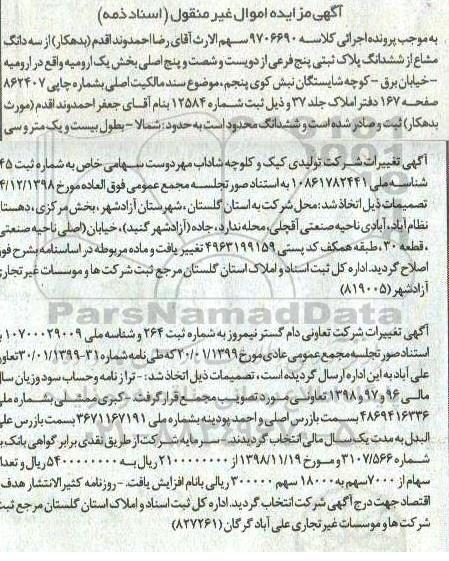 آگهی مزایده اموال غیر منقول (اسناد ذمه)
به موجب پرونده اجرائی کلاسه ۹۷۰۶۶۹۰ سهم الارث آقای رضا احمدوند اقدم (بدهکار) از سه دانگ
مشاع از ششدانگ پلاک ثبتی پنج فرعی از دویست و شصت و پنج اصلی بخش یک ارومیه واقع در ارومیه
-خیابان برق - کوچه شایستگان نبش کوی پنجم، موضوع سند مالکیت اصلی بشماره چاپی ۸۶۲۴۰۷
صفحه ۱۶۷ دفتر املاک جلد ۳۷ و ذیل ثبت شماره ۱۲۵۸۴ بنام آقای جعفر احمدوند اقدم (مورث
بدهکار) ثبت و صادر شده است و ششدانگ محدود است به حدود: شمالا - بطول بیست و یک متر و سی
آگهی تغییرات شرکت تولیدی کیک و کلوچه شاداب مهر دوست سهامی خاص به شماره ثبت ۴۵
شناسه ملی ۱۰۸۶۱۷۸۲۴۴۱ به استناد صورتجلسه مجمع عمومی فوق العاده مورخ ۴/۱۲/۱۳۹۸
تصمیمات ذیل اتخاذ شد: محل شرکت به استان گلستان، شهرستان آزادشهر، بخش مرکزی، دهستا
نظام آباد، آبادی ناحیه صنعتی آقجلی، محله ندارد، جاده (آزادشهر گنبد)، خیابان (اصلی ناحیه صنعتی
، قطعه ۳۰، طبقه همکف کد پستی ۴۹۶۳۱۹۹۱۵۹ تغییر یافت و ماده مربوطه در اساسنامه بشرح فوق
اصلاح گردید. اداره کل ثبت اسناد و املاک استان گلستان مرجع ثبت شرکت ها و موسسات غیر تجاری
آزادشهر (۸۱۹۰۰۵)
ParsNamadData
آگهی تغییرات شرکت تعاونی دام گستر نیمروز به شماره ثبت ۲۶۴ و شناسه ملی ۱۰۷۰۰۰۲۹۰۰۹
استناد صورتجلسه مجمع عمومی عادی مورخ ۲۰/۰۱/۱۳۹۹ که طی نامه شماره ۳۱-۳۰/۰۱/۱۳۹۹ تعاون
علی آباد به این اداره ارسال گردیده است، تصمیمات ذیل اتخاذ شد: - ترازنامه وحساب سود وزیان سال
مالی ۹۶ و ۹۷ و ۱۳۹۸ تعاونی مورد تصویب مجمع قرار گرفت - کبری ممشلی بشماره ملی
۴۸۶۹۴۱۶۳۳۶ بسمت بازرس اصلی و احمد پودینه بشماره ملی ۳۶۷۱۱۶۷۱۹۱ بسمت بازرس علی
البدل به مدت یک سال مالی انتخاب گردیدند. - سرمایه شرکت از طریق نقدی برابر گواهی بانک به
شماره ۳۱۰۷/۵۶۶ و مورخ ۱۳۹۸/۱۱/۱۹ از ۲۱۰۰۰۰۰۰۰۰ ریال به ۵۴۰۰۰۰۰۰۰۰ ریال و تعداد
سهام از ۷۰۰۰ سهم به ۱۸۰۰۰ سهم ۳۰۰۰۰۰ ریالی بانام افزایش یافت. - روزنامه کثیرالانتشار هدف و
اقتصاد جهت درج آگهی شرکت انتخاب گردید. اداره کل ثبت اسناد و املاک استان گلستان مرجع ثبت
شرکت ها و موسسات غیر تجاری علی آباد گرگان (۸۲۷۲۶۱)